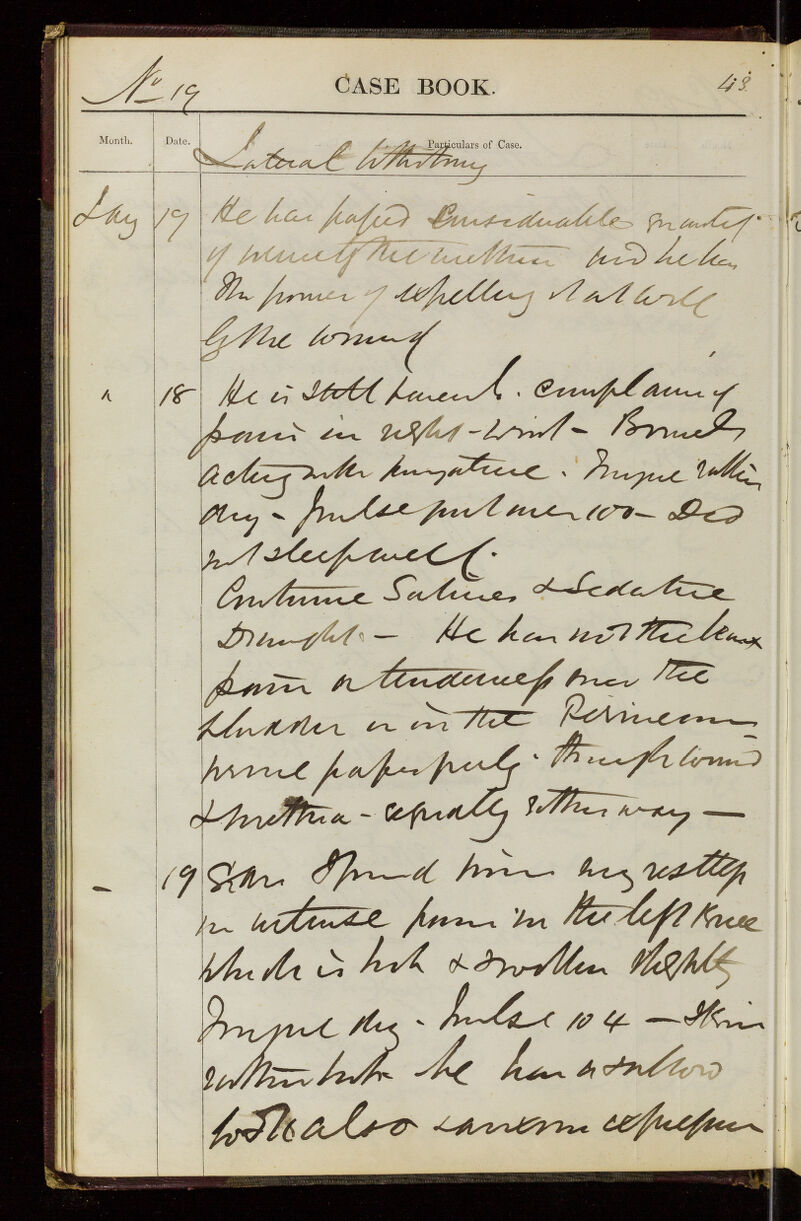 No 19
CASE BOOK.
43
Month.
Date.
Particulars of Case.
Lateral Lithotomy
19 He has passed considerable quantity
of urine by the urethra and he has
the power of expelling it at will
by the wound
" 18 He is still feverish. complains of
pain in right wrist - Bowels
acting with purgative. Tongue rather
dry - Pulse just over 100 - Did
not sleep well.
Continue Salines & Sedative
Draught - He has not the least
pain or tenderness over the
bladder or in the Perineum
urine passes freely. through wound
& urethra - equally either way -
- 19 9 am I found him very restless
in intense pain in the left Knee
which is hot & swollen slightly
Tongue dry - Pulse 104 - Skin
rather hot he has a sallow
look also & anxious expression